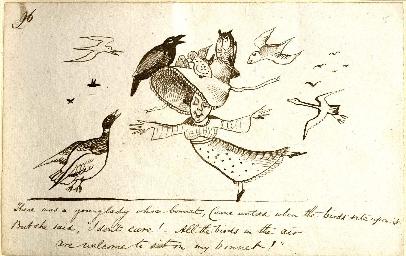 96
There was a young lady whose bonnet, Came untied when the birds sate upon it.
But she said, "I don't care! All the birds in the air
are welcome to sit on my bonnet!"